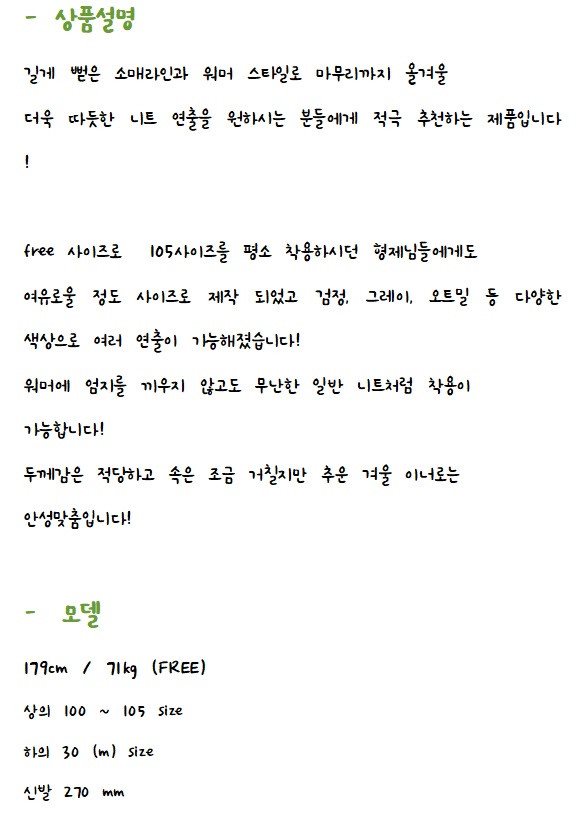 - 상품설명
길게 뻗은 소매라인과 워머 스타일로 마무리까지 올겨울
더욱 따듯한 니트 연출을 원하시는 분들에게 적극 추천하는 제품입니다
!
free 사이즈로 105사이즈를 평소 착용하시던 형제님들에게도
여유로울 정도 사이즈로 제작 되었고 검정, 그레이, 오트밀 등 다양한
색상으로 여러 연출이 가능해졌습니다!
워머에 엄지를 끼우지 않고도 무난한 일반 니트처럼 착용이
가능합니다!
두께감은 적당하고 속은 조금 거칠지만 추운 겨울 이너로는
안성맞춤입니다!
- 모델
179cm / 71kg (FREE)
상의 100 ~ 105 size
하의 30 (m) size
신발 270 mm